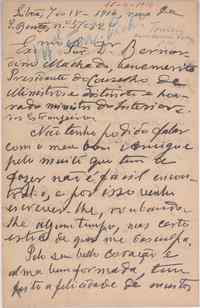 Lisboa, 7 de 18 - 1914, rua de
S. Bento, nº 57
Sr. Dr. Bernar-
dino Machado, benemerito
Presidente do Conselho de
Ministros e distincto e hon-
rado ministro do Interior e
dos Estrangeiros
Não tenho podido falar
com o meu bom amigo que
pelo muito que tem de
fazer não é facil encon-
tral-o, e por isso venho
escrever-lhe, roubando-
lhe algum tempo, mas certo
estou de que me desculpa.
Pelo seu bello coração e
alma bem formada, tem
feito a felicidade de muitos